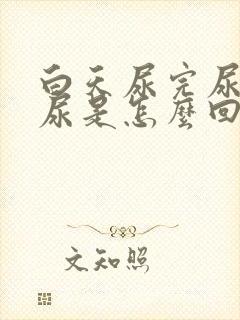 白天尿完尿
尿是怎麼回
文知照